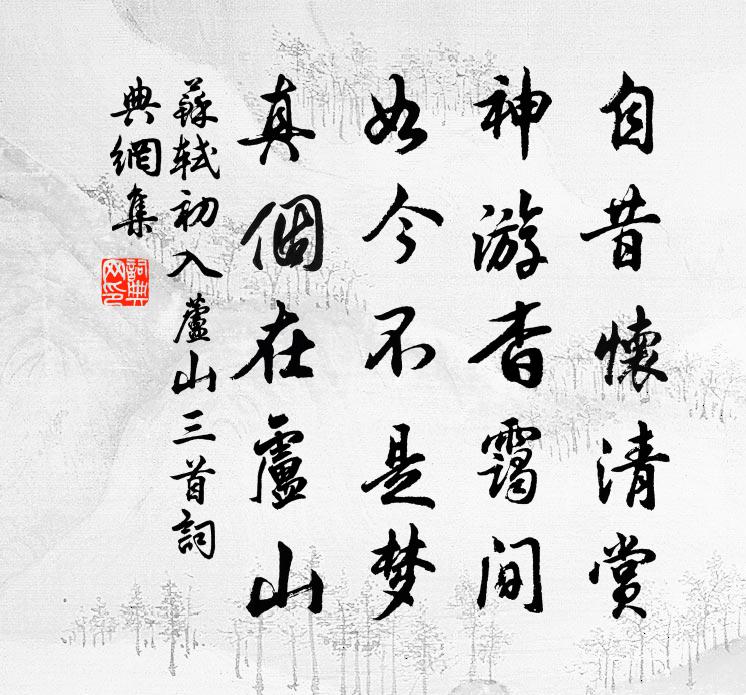 自昔懷清賞
神游杳靄間
如今不是梦
真個在廬山
蘇軾初入蘆山三首詞
典網集
詞典
网印